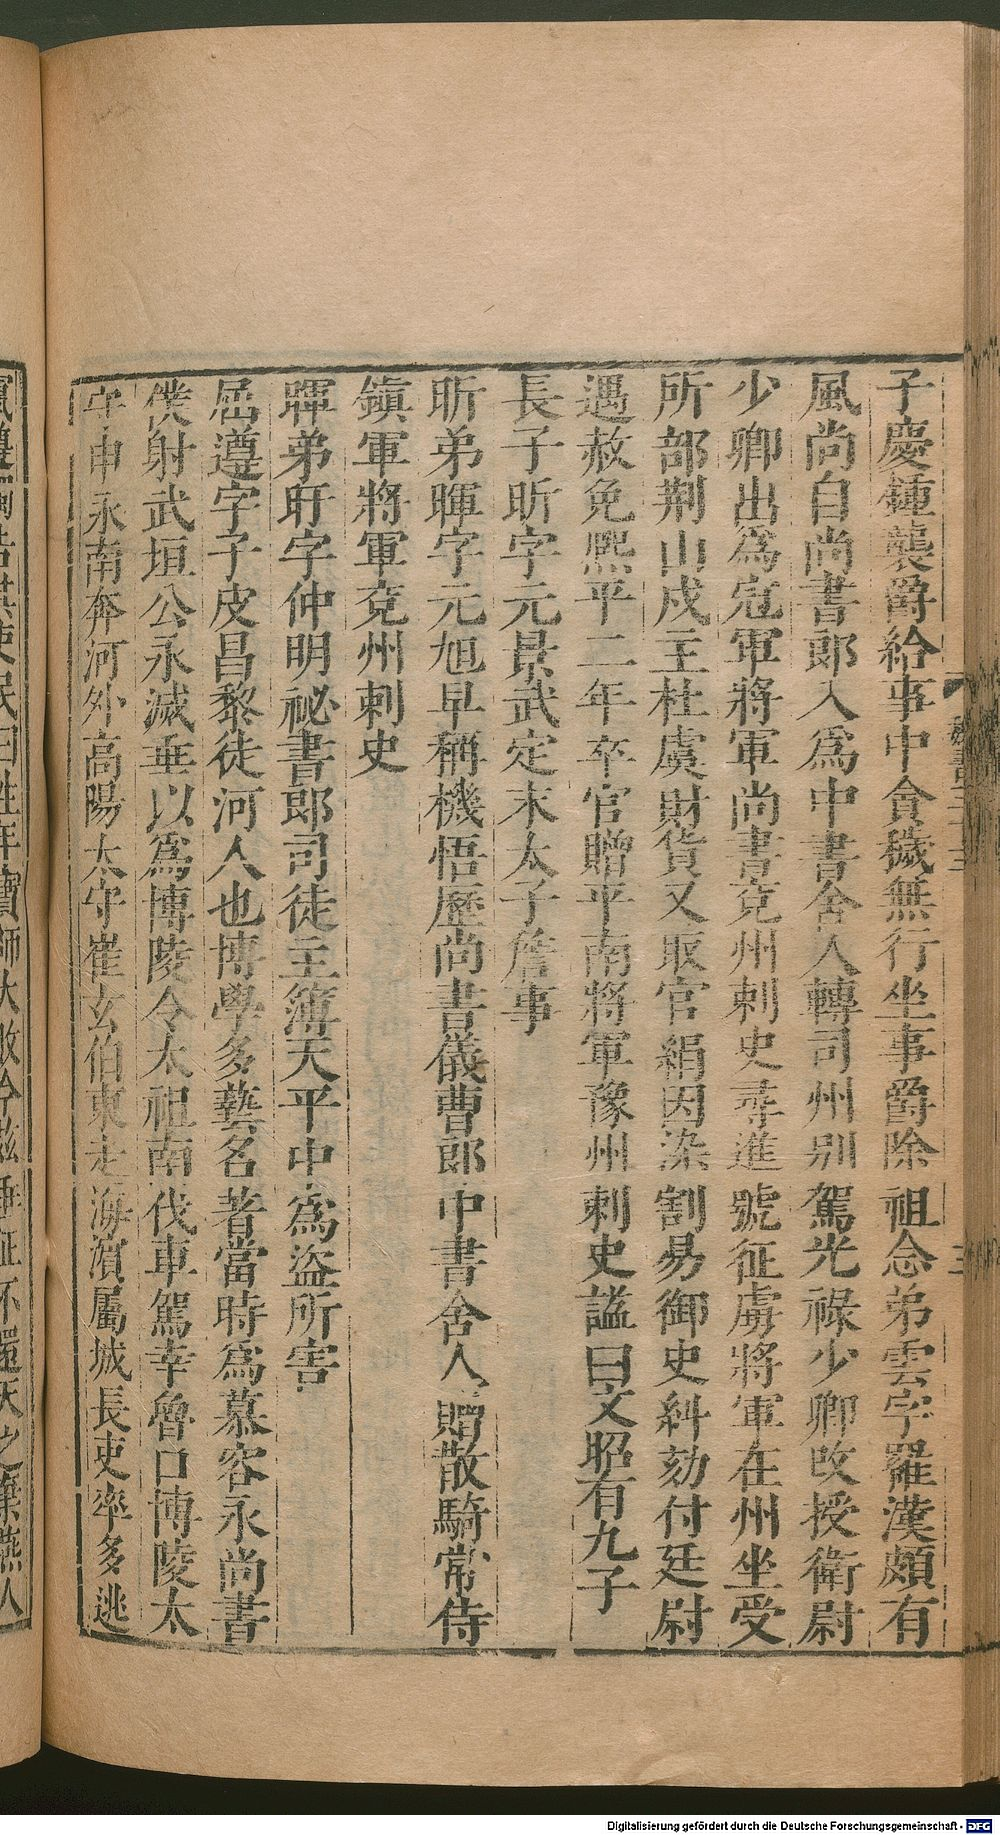 子慶鍾襲爵給事中貪穢無行坐事爵除祖念弟雲字羅漢頗有
風尚自尚書郎入爲中書舍人轉司州別駕光祿少卿改授衛尉
少卿出爲冠軍將軍尚書兗州刺史尋進號征虜將軍在州坐受
所部荆山戍主杜虞財貨又取官絹因染割易御史糾劾付廷尉
遇赦免熙平二年卒官贈平南將軍豫州刺史謚曰文昭有九子
長子昕字元景武定末太子詹事
昕弟暉字元旭早稱機悟歷尚書儀曹郎中書舍人贈散騎常侍
鎭軍將軍兗州刺史
暉弟旰字仲明祕書郎司徒主簿天平中爲盜所害
屈遵字子皮昌黎徒河人也博學多藝名著當時爲慕容永尚書
僕射武垣公永滅垂以爲博陵令太祖南伐車駕幸魯口博陵太
守申永南奔河外高陽太守崔玄伯東走海濱屬城長吏率多逃
魏書三十三
三
Digitalisierung gefördert durch die Deutsche Forschungsgemeinschaft - DFG